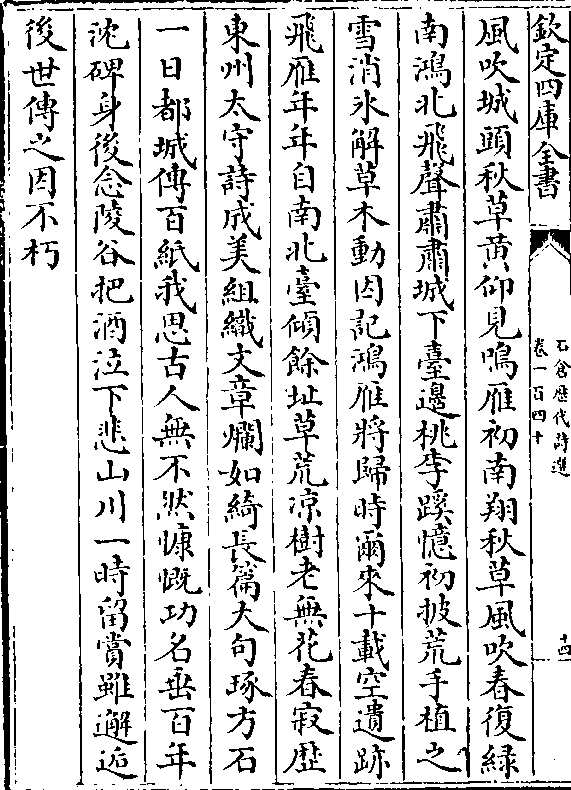 欽定四庫全書
石倉歴代詩選
卷一百四十
十四
風吹城頭秋草黄仰見鳴雁初南翔秋草風吹春復緑
南鴻北飛聲肅肅城下臺邊桃李蹊憶初披荒手植之
雪消氷解草木動因記鴻雁將歸時爾來十載空遺跡
飛雁年年自南北臺傾餘址草荒凉樹老無花春寂歴
東州太守詩成美組織文章爛如綺長篇大句琢方石
一日都城傳百紙我思古人無不然慷慨功名垂百年
沈碑身後念陵谷把酒泣下悲山川一時留賞雖邂逅
後世傳之因不朽